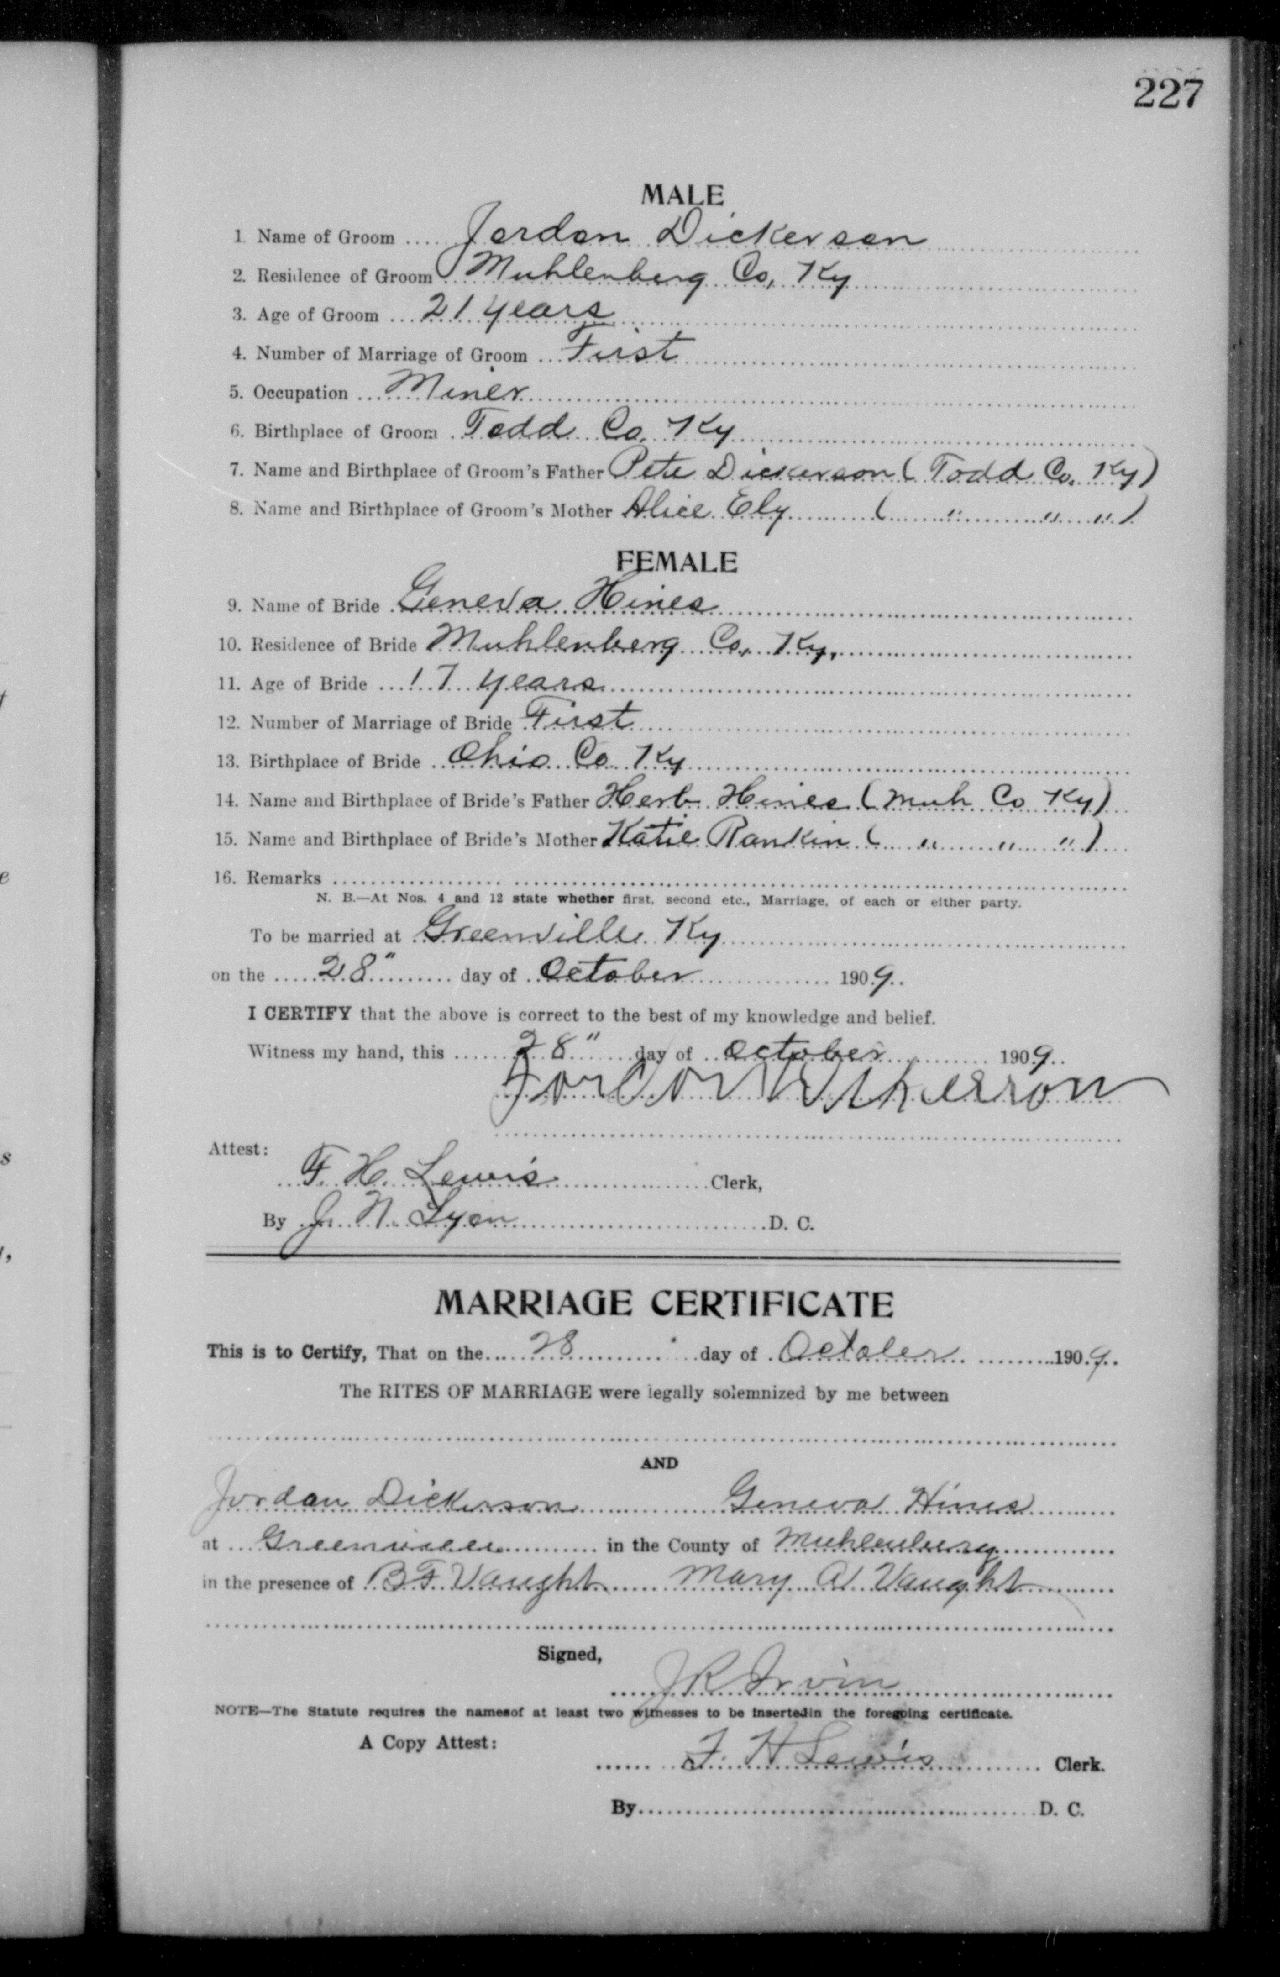 227
MALE
1 Name of Groom Jordan Dickerson
2. Residence of Groom Muhlenberg Co, Ky
3. Age of Groom 21 years
4. Number of Marriage of Groom First
5. Occupation Miner
6. Birthplace of Groom Todd Co. Ky
7. Name and Birthplace of Groom's Father Pete Dickerson (Todd Co. Ky)
8. Name and Birthplace of Groom's Mother Alice Ely ( " " ")
FEMALE
9. Name of Bride Geneva Hines
10. Residence of Bride Muhlenberg Co, Ky,
11. Age of Bride 17 years
12. Number of Marriage of Bride First
13. Birthplace of Bride Ohio Co Ky
14. Name and Birthplace of Bride's Father Herb Hines (Muh Co Ky)
15. Name and Birthplace of Bride's Mother Katie Rankin ( " " ")
16. Remarks
N. B.—At Nos. 4 and 12 state whether first, second etc., Marriage, of each or either party.
To be married at Greenville Ky
on the 28" day of October 1909.
I CERTIFY that the above is correct to the best of my knowledge and belief.
Witness my hand, this 28" day of October 1909.
Jordon Dickerson
Attest:
F. H. Lewis Clerk,
By J. N. Lyon D. C.
MARRIAGE CERTIFICATE
This is to Certify, That on the 28 day of October 1909.
The RITES OF MARRIAGE were legally solemnized by me between
AND
Jordan Dickerson Geneva Hines
at Greenville in the County of Muhlenburg
in the presence of B F Vaught Mary A Vaught
Signed,
J R Irvin
NOTE—The Statute requires the namesof at least two witnesses to be insertedin the foregoing certificate.
A Copy Attest:
F. H Lewis Clerk.
By D. C.